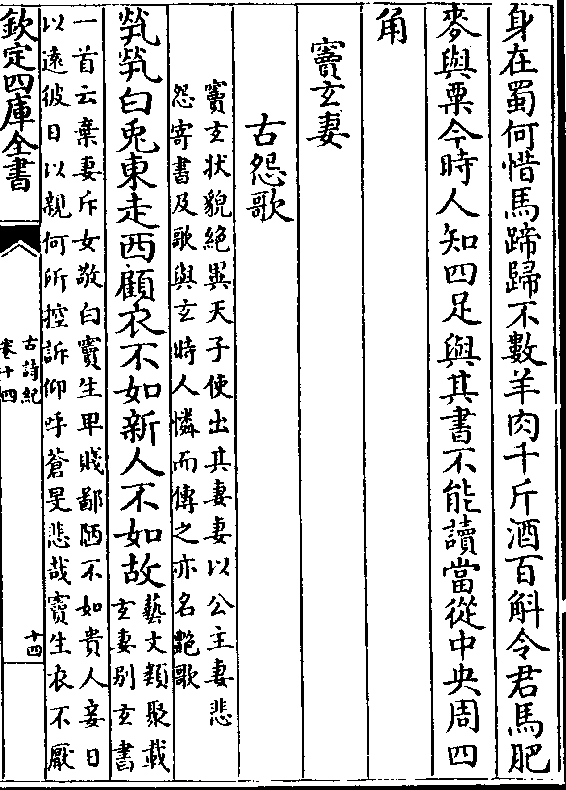 身在蜀何惜馬蹄歸不數羊肉千斤酒百斛令君馬肥
麥與粟今時人知四足與其書不能讀當從中央周四
角
竇玄妻
古怨歌
竇玄狀貌絶異天子使出其妻妻以公主妻悲
怨寄書及歌與玄時人憐而傳之亦名艶歌
煢煢白兎東走西顧衣不如新人不如故
藝文類聚載
玄妻别玄書
一首云棄妻斥女敬白竇生卑賤鄙陋不如貴人妾日
以逺彼日以親何所控訴仰呼蒼旻悲哉竇生衣不厭
欽定四庫全書
古詩紀
卷十四
十四